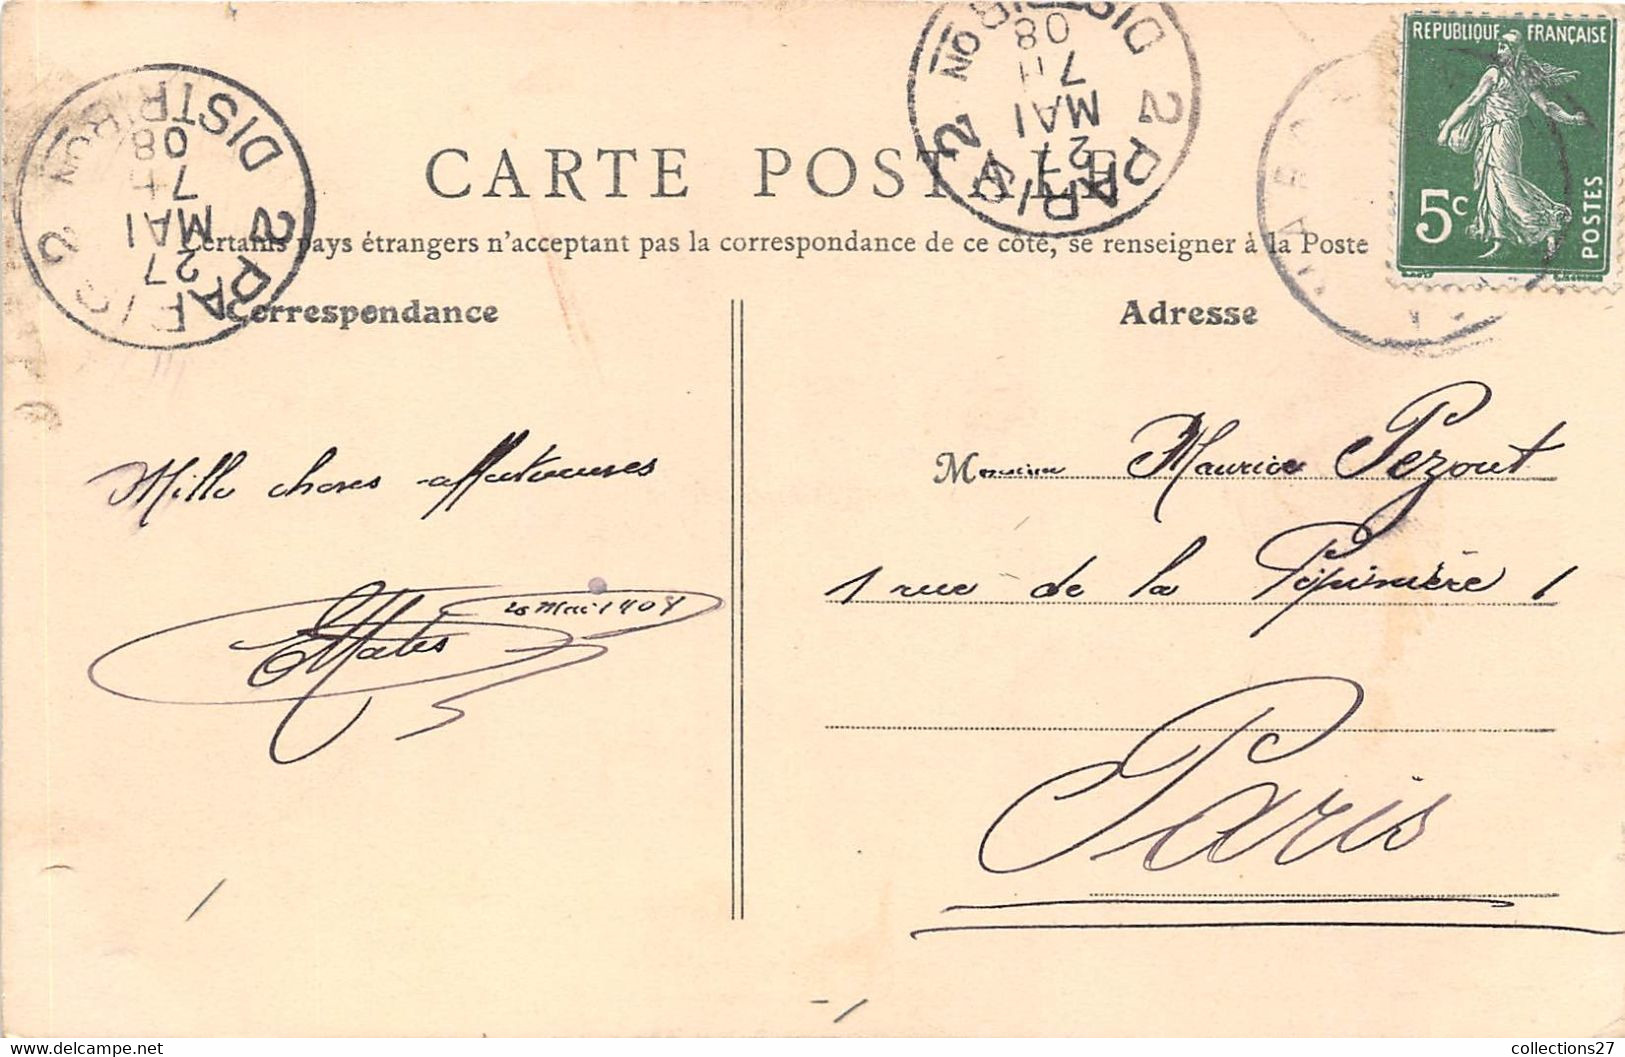 CARTE POSTALE
Certains pays étrangers n'acceptent pas la correspondance de ce côté, se renseigner à la Poste
Correspondance
Adresse
REPUBLIQUE FRANÇAISE
5c
POSTES
2 PARIS 2
DISTRIBON
27
MAI
7 H
08
2 PARIS 2
DISTRIBON
27
MAI
7 H
08
Mille choses affectueuses
Mai 1908
Monsieur Maurice Pezout
1 rue de la Pépinière 1
Paris
collections27